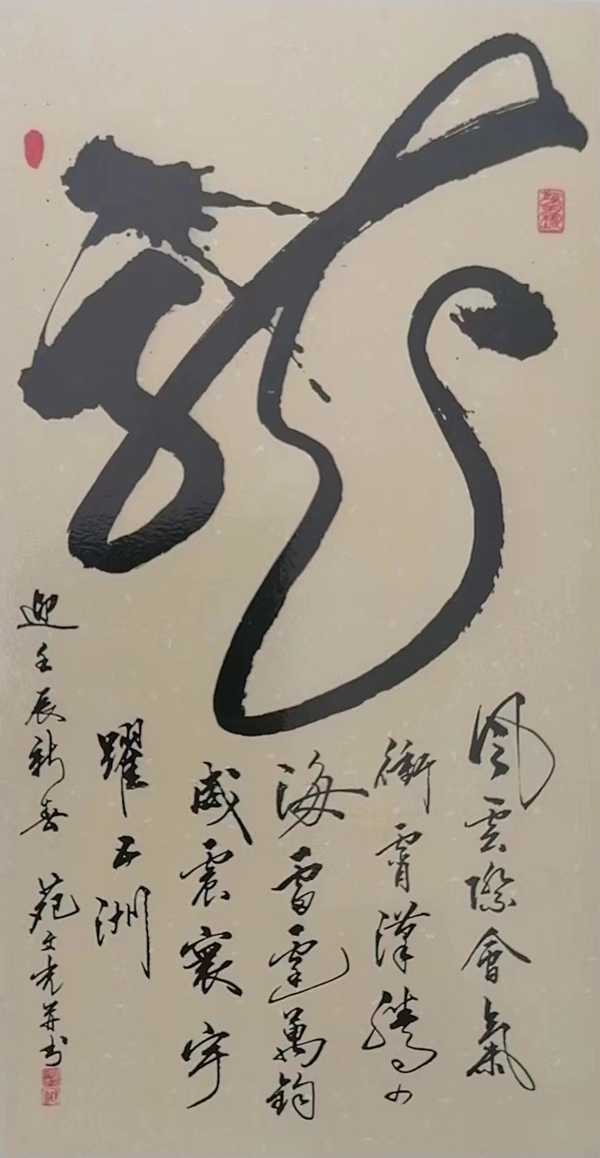 龍
風雲際會氣
衝霄漢騰四
海雷霆萬鈞
威震寰宇
躍五洲
迎壬辰新春 苑文光並書